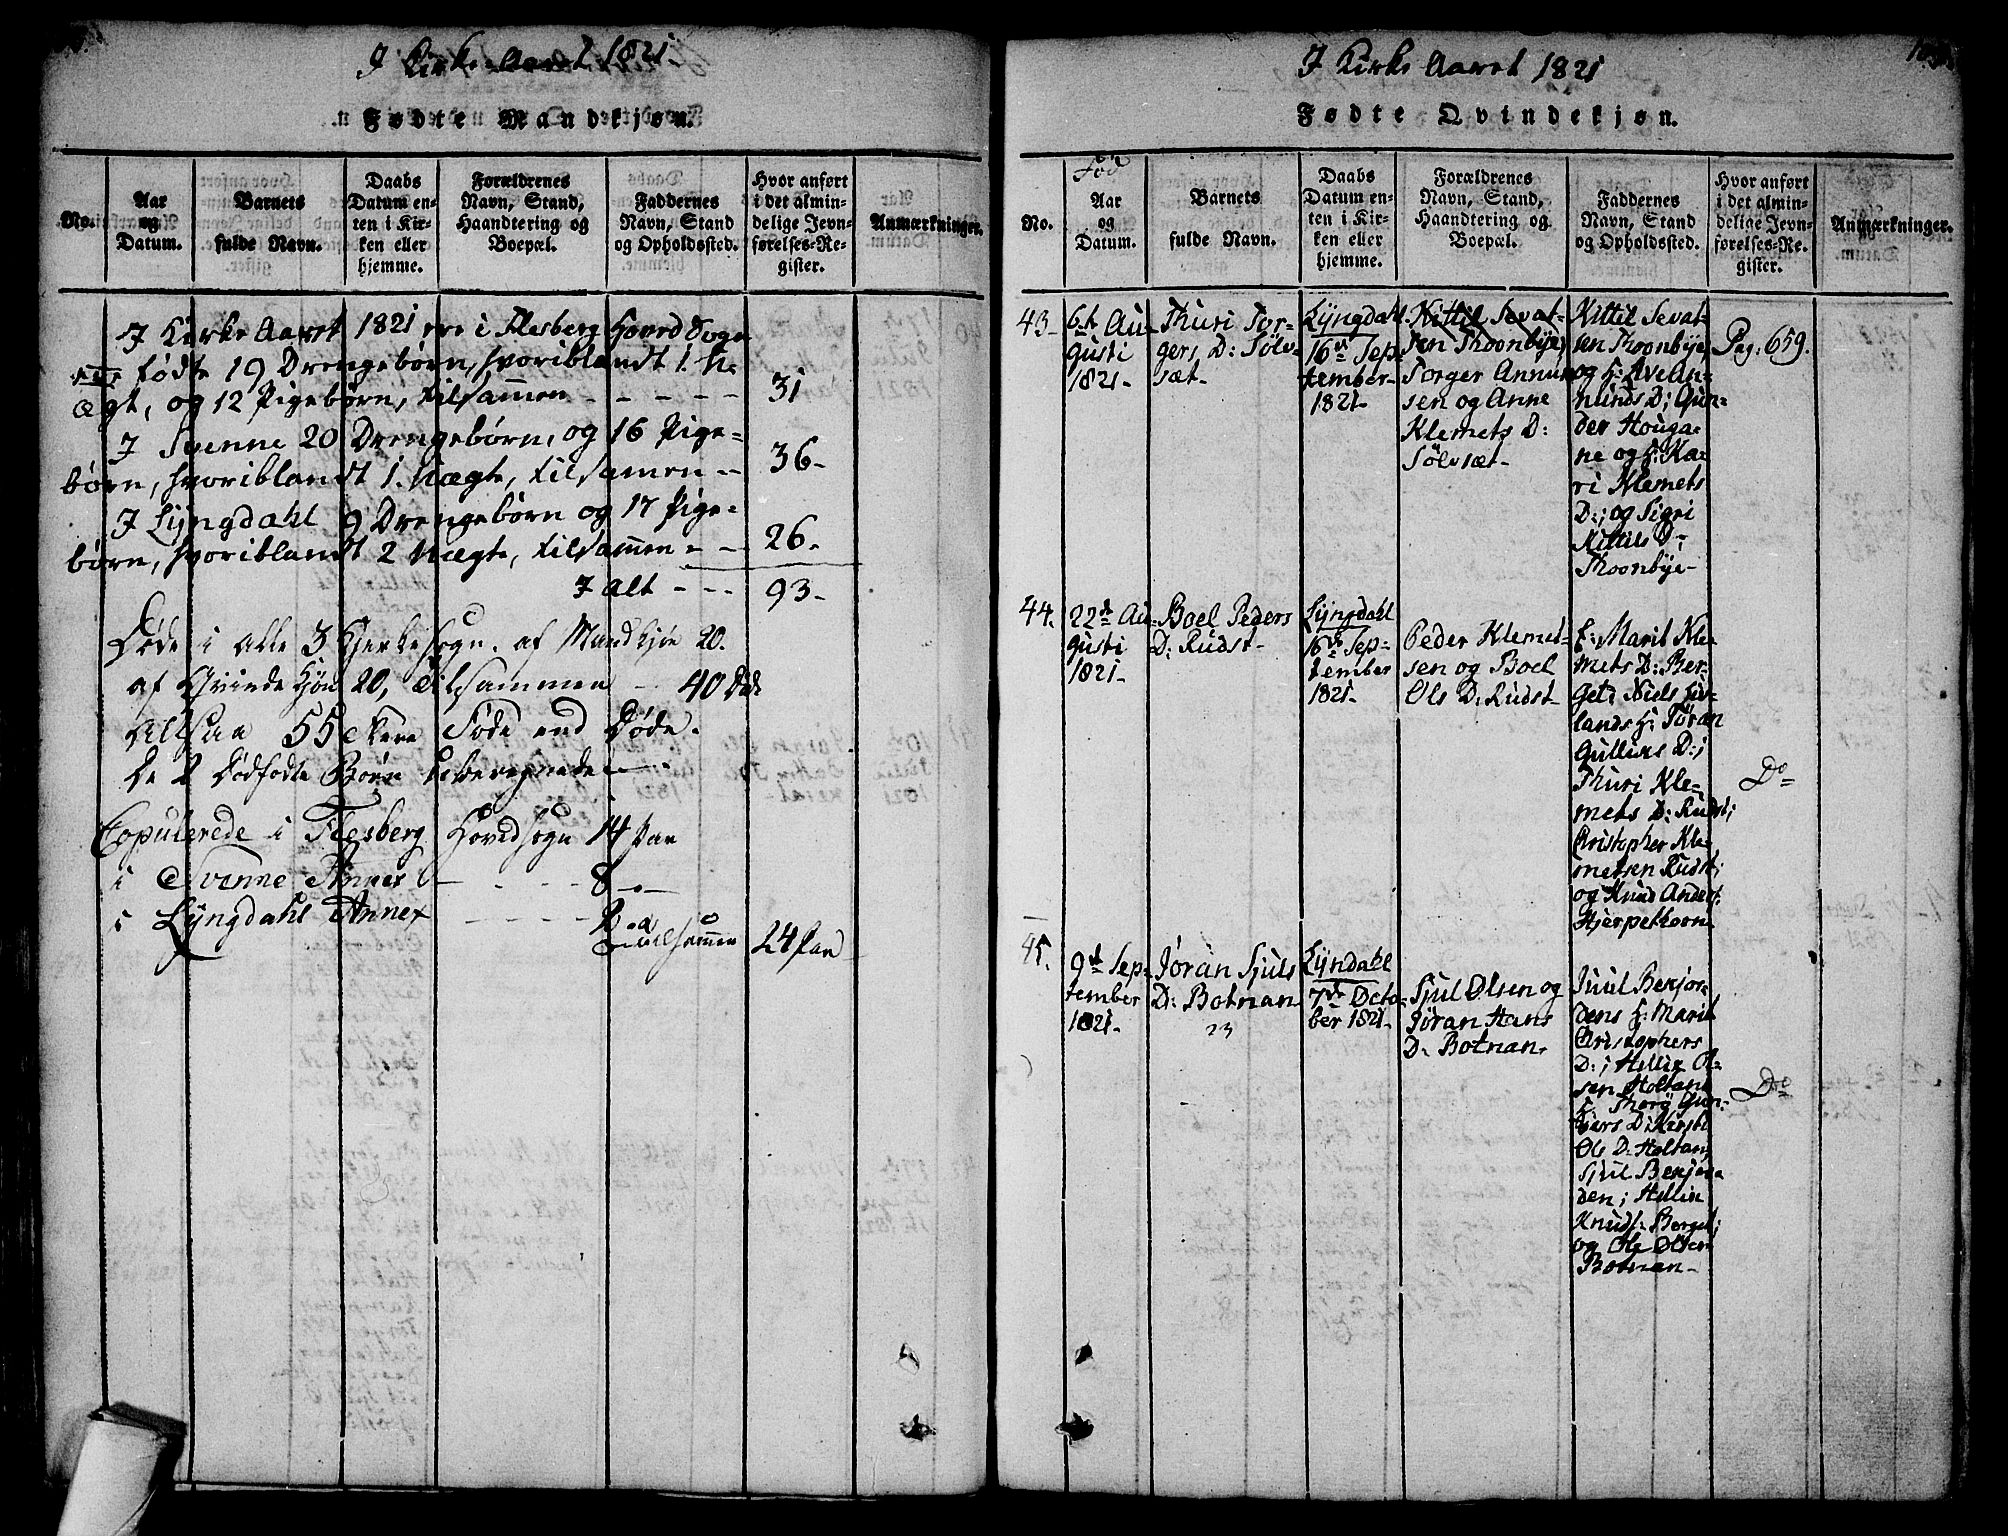 J Kirke Aaret 1821.
Fødte Mandkjøn.
No.
Aar
og
Datum.
Barnets
fulde Navn.
Daabs
Datum en-
ten i Kir-
ken eller
hjemme.
Forældrenes
Navn, Stand,
Haandtering og
Boepæl.
Faddernes
Navn, Stand
og Opholdssted.
Hvor anført
i det almin-
delige Jevn-
førelses-Re-
gister.
Anmærkninger.
J Kirke Aaret 1821 ere i Flesberg Hoved Sogn
fødte 19 Drengebørn, hvoriblandt 1. U-
ægt, og 12 Pigebørn, tilsammen - - - - - 31
J Svenne 20 Drengebørn, og 16 Pige=
børn, hvoriblandt 1. Uægte, tilsamen -- 36-
J Lyngdahl 9 Drengebørn og 17 Pige=
børn, hvoriblandt 2 Uægte, tilsammen - - 26-
J alt - - - 93-
Døde i alle 3 Kjerke sogn. af Mandkjøn 20.
af Qvinde Kjøn 20, tilsammen - 40 Døde
Altsaa 55 flere Føde end Døde.
De 2 Dødfødte Børn uberegnede
Copulerede i Flesberg Hovedsogn 14 Par
i Svenne Annex - - - - 8 -
i Lyngdahl Annex - - - - 2 -
tilsammen 24 Par
J Kirke Aaret 1821
Fødte Qvindekjøn.
No.
Fød
Aar
og
Datum.
Barnets
fulde Navn.
Daabs
Datum en-
ten i Kir-
ken eller
hjemme.
Forældrenes
Navn, Stand,
Haandtering og
Boepæl.
Faddernes
Navn, Stand
og Opholdssted.
Hvor anført
i det almin-
delige Jevn-
førelses-Re-
gister.
Anmærkninger.
43-
6te Au-
gusti
1821-
Thuri Tor-
gers D: Sølv-
sæt-
Lyngdahl
16de Sep-
tember
1821-
Kittil Sevat-
sen Thoonbye,
Torger Annun
sen og Anne
Klemets D:
Sølvsæt-
Kittil Sevat-
sen Thoonbye,
og H: Ave An-
nunds D; Gun-
der Houga-
ne og H: Ka-
ri Klemets
D:; og Sigri
Kittils D;
Thoonbye-
Pag: 659.
44.
22de Au-
gusti
1821-
Boel Peders
D: Rudst-
Lyngdahl
16de Sep-
tember
1821-
Peder Klemet-
sen og Boel
Ols D: Rudst-
E: Marit Kle-
mets D: Ber-
get; Niels Liv-
lands H: Jøran
Gulliks D:;
Thuri Kle-
mets D: Rudst;
Christopher Kle-
metsen Rudst;
og Knud Anders:
Hjerpekorn-
Do
45.
9de Sep-
tember
1821-
Jøran Sjuls
D: Botnan
23
Lyndahl
7de Octo-
ber 1821-
Sjul Olsen og
Jøran Hans
D: Botnan.
Juul Benjor-
dens H: Marit
Christophers
D:; Hellie Ol-
sen Holtan
H: Thorø Gun-
Ols D: Holtan
Sjul Benjor-
den; Hellie
Knuds: Berget;
og Ole Olsen
Botnan-
Do